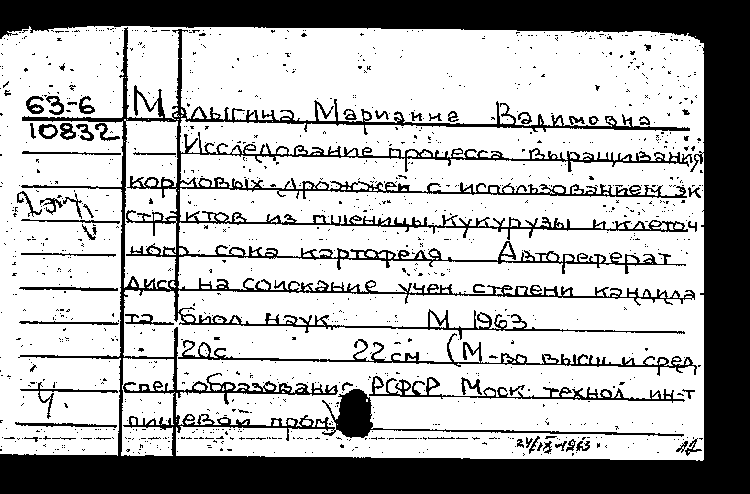 63-6
10832
Малыгина, Марианна Вадимовна
Исследование процесса выращивания
кормовых дрожжей с использованием эк
страктов из пшеницы, кукурузы и клеточ-
ного сока картофеля. Автореферат
дисс. на соискание учен. степени кандида-
та биол. наук. М., 1963.
20с. 22см (М-во высш. и сред.
спец. образования РСФСР. Моск. технол. ин-т
пищевой пром.)
2 экз
Ч.
24/IX-1963.